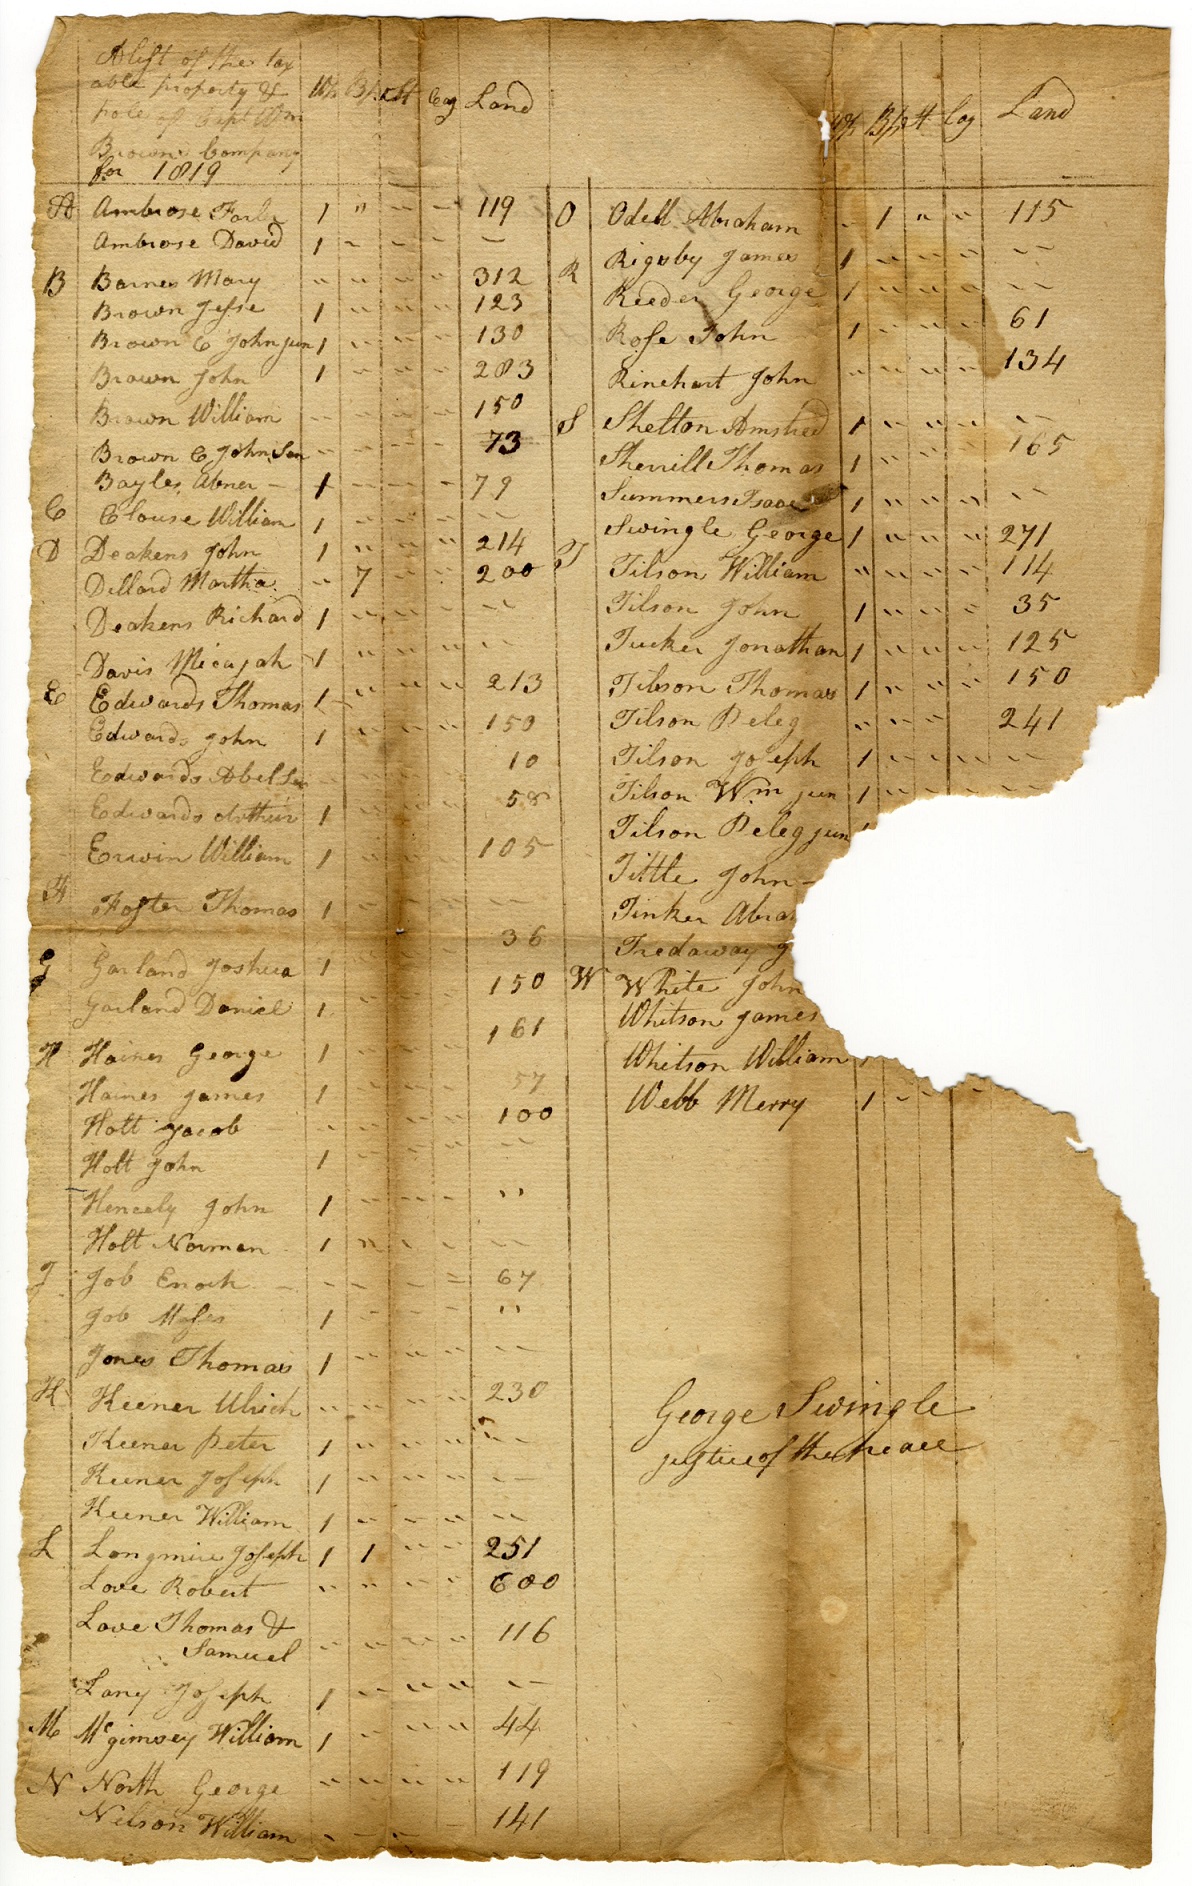 A list of the tax
able property &
pole of Capt Wm
Browns Company
for 1819
Wp Bp St Cag Land
A Ambrose 1 " - - 119
Ambrose David 1 - - - - -
B Barnes Mary " " " " 312
Brown Jesse 1 " " " 123
Brown C John jun 1 " " " 130
Brown John 1 " " " 283
Brown William - - - - 150
Brown C John, Sen - - - - 73
Bayles Abner - 1 - - - 79
C Clouse William 1 " " " - -
D Deakens John 1 " " " 214
Dillard Martha " 7 - - 200
Deakens Richard 1 " " " - -
Davis Micajah - 1 " " " - -
E Edwards Thomas 1 " " " 213
Edwards John 1 " " " 150
Edwards Abel Sen - - - - 10
Edwards Arthur 1 " " " 58
Erwin William 1 " " " 105
F Foster Thomas 1 " " " - -
G Garland Joshua 1 - - - 36
Garland Daniel 1 - - - 150
H Haines George 1 - - - 161
Haines James 1 - - - 57
Holt Jacob - - - - 100
Holt John 1 - - - - -
Hencely John 1 " " " " "
Holt Norman 1 " - - - -
J Job Enoch - - - - = 67
Job Moses 1 - - - " "
Jones Thomas 1 " " " - -
K Keener Ulrich " " " " 230
Keener Peter 1 " " " - -
Keener Joseph 1 " " " - -
Keener William 1 - - - - -
L Longmire Joseph 1 1 " " 251
Love Robert " " " " 600
Love Thomas &
Samuel " " " " 116
Lany Joseph 1 " " " - -
M McGimsey William 1 " " " 44
N North George " " " " 119
Nelson William - - - - 141
Wp Bp St Cag Land
O Odell Abraham - 1 " " 115
R Rigsby James 1 " " " - -
Reeder George 1 " " " - -
Rose John 1 " " " 61
Rinehart John " " " " 134
S Shelton Amsted 1 " " " - -
Sherrill Thomas 1 " " " 165
Summers Isaac 1 " " " - -
Swingle George 1 " " " 271
T Tilson William " " " " 114
Tilson John 1 " " " 35
Tucker Jonathan 1 " " " 125
Tilson Thomas 1 " " " 150
Tilson Peleg " " " 241
Tilson Joseph 1 - - - - -
Tilson Wm jun 1 - - - - -
Tilson Peleg jun 1
Tittle John -
Tinker Abra
Tredaway J
W White John
Whitson James
Whitson William 1
Webb Merry 1 - - - -
George Swingle
justice of the peace